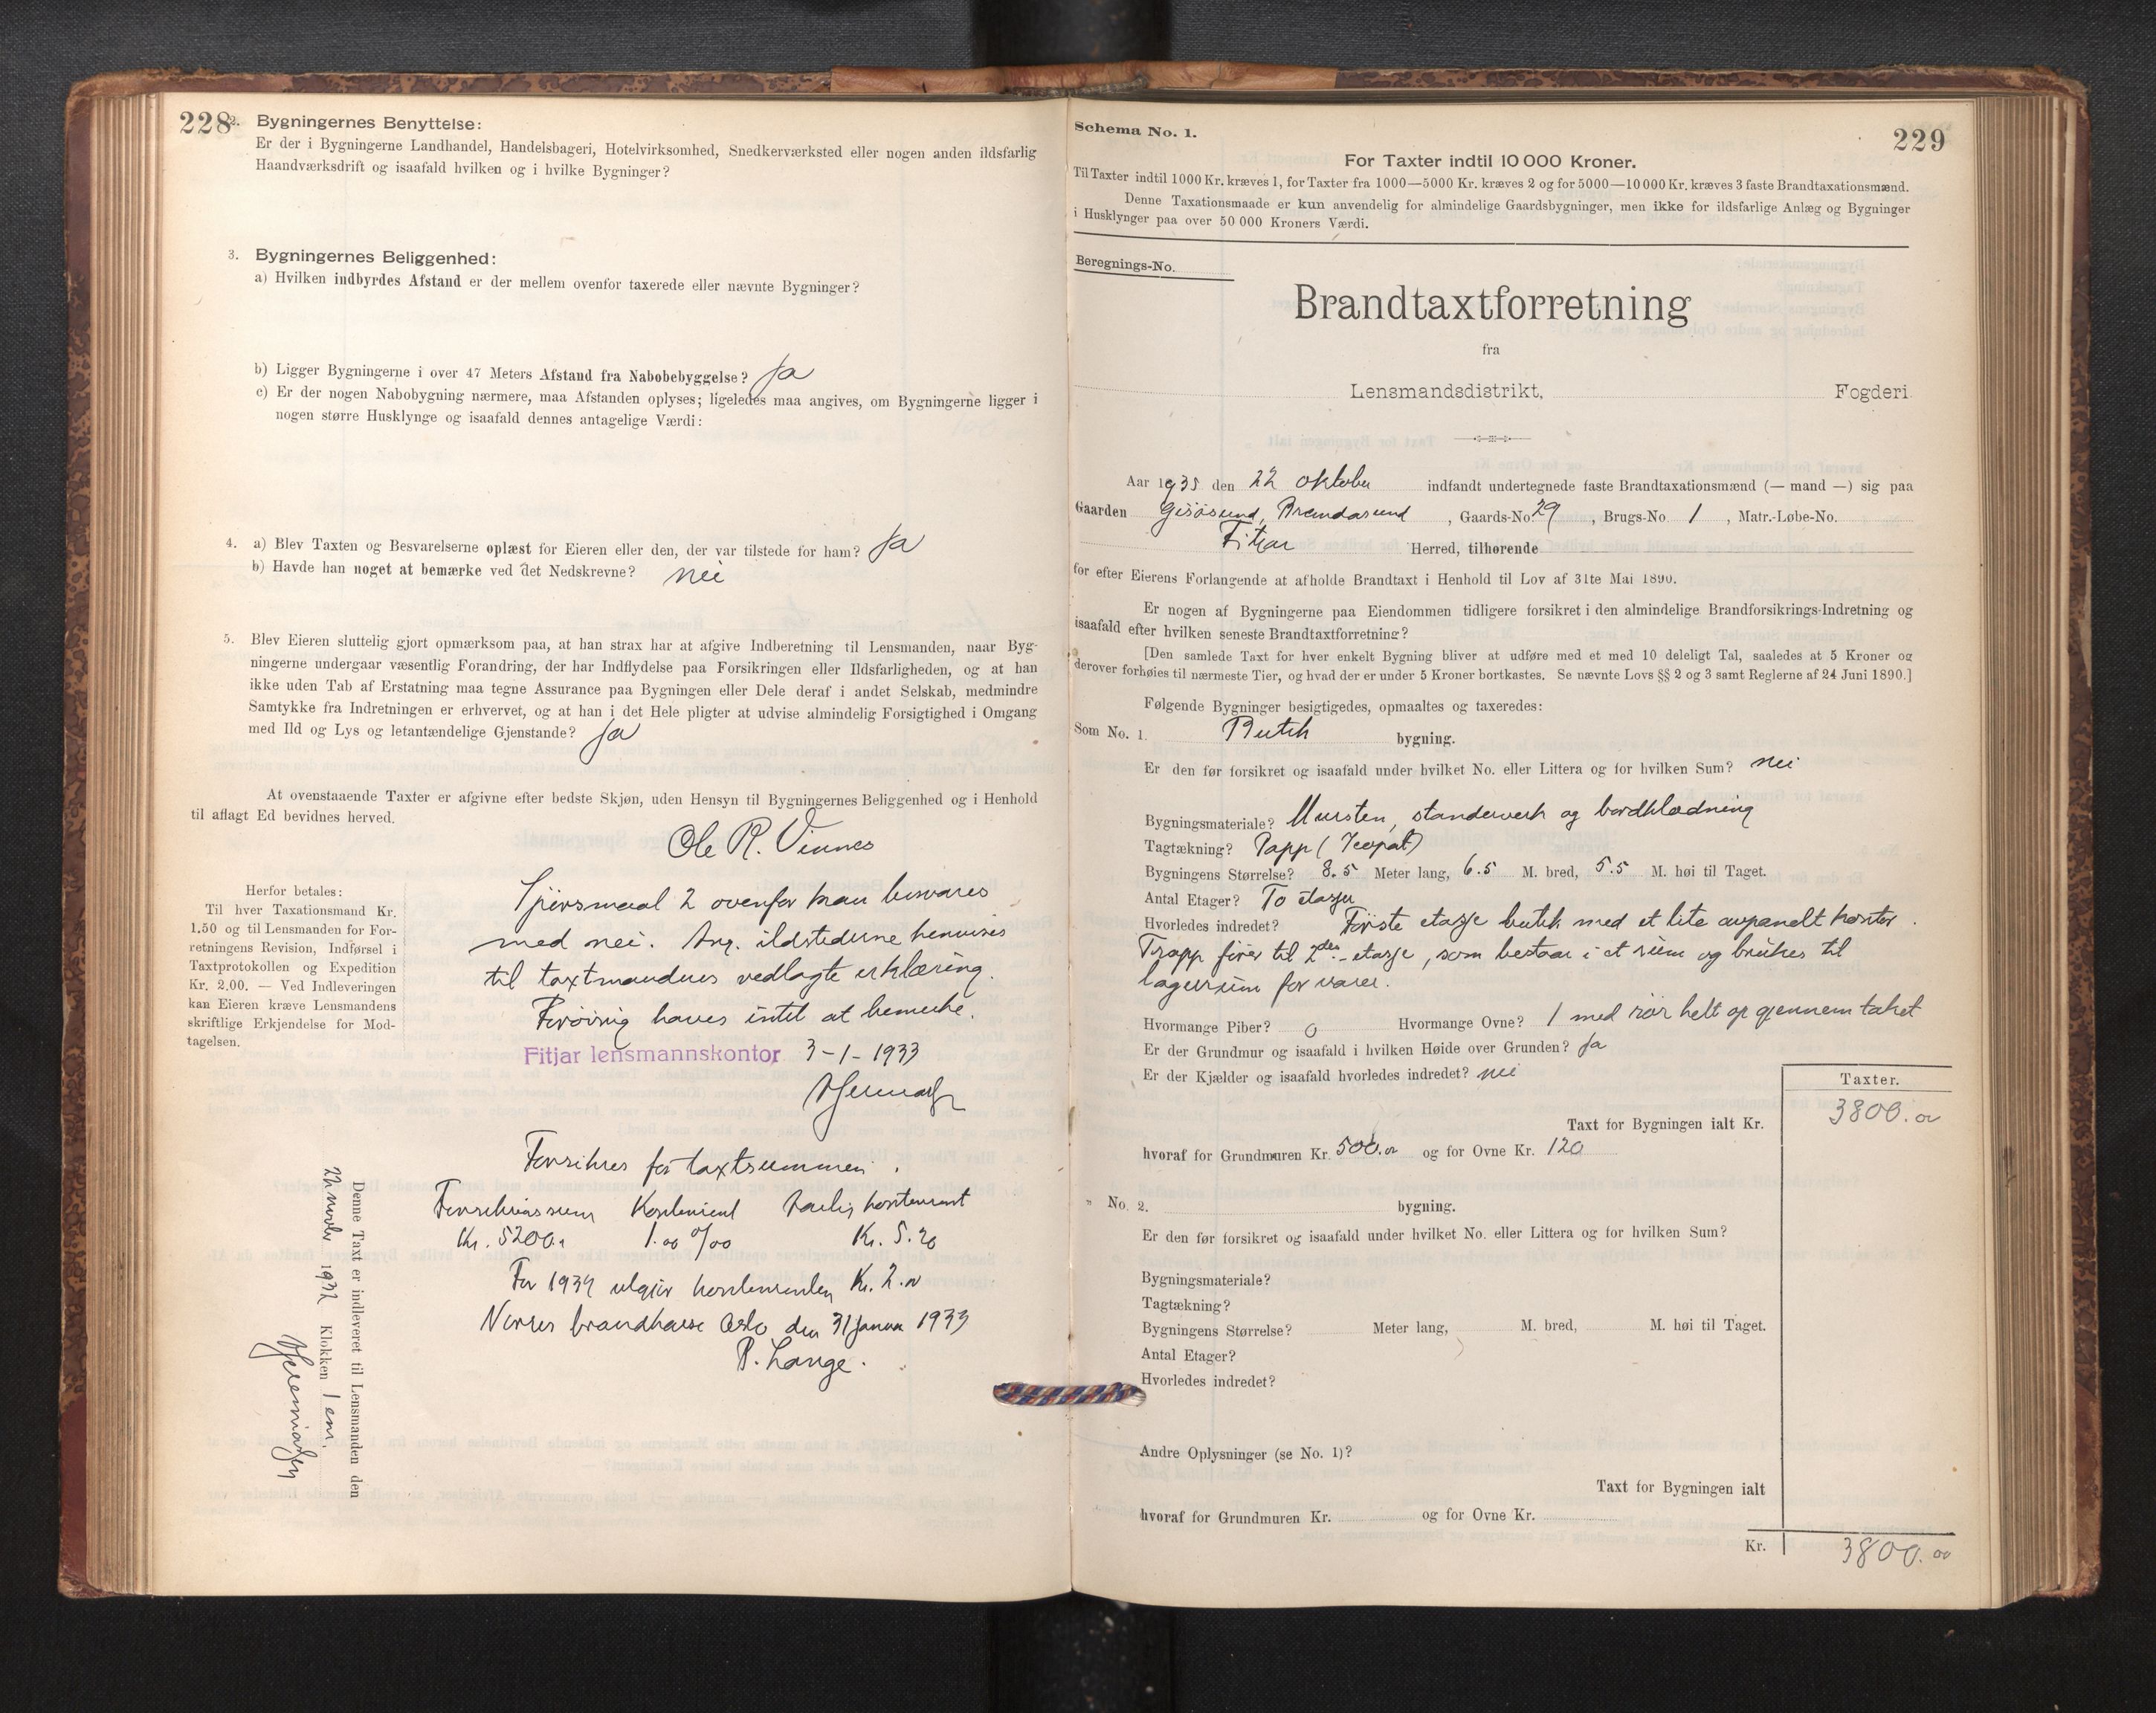 228
2. Bygningernes Benyttelse:
Er der i Bygningerne Landhandel, Handelsbageri, Hotelvirksomhed, Snedkerværksted eller nogen anden ildsfarlig
Haandværksdrift og isaafald hvilken og i hvilke Bygninger?
3. Bygningernes Beliggenhed:
a) Hvilken indbyrdes Afstand er der mellem ovenfor taxerede eller nævnte Bygninger?
b) Ligger Bygningerne i over 47 Meters Afstand fra Nabobebyggelse? Ja
c) Er der nogen Nabobygning nærmere, maa Afstanden oplyses; ligeledes maa angives, om Bygningerne ligger i
nogen større Husklynge og isaafald dennes antagelige Værdi:
4. a) Blev Taxten og Besvarelserne oplæst for Eieren eller den, der var tilstede for ham? Ja
b) Havde han noget at bemærke ved det Nedskrevne? nei
5. Blev Eieren sluttelig gjort opmærksom paa, at han strax har at afgive Indberetning til Lensmanden, naar Byg-
ningerne undergaar væsentlig Forandring, der har Indflydelse paa Forsikringen eller Ildsfarligheden, og at han
ikke uden Tab af Erstatning maa tegne Assurance paa Bygningen eller Dele deraf i andet Selskab, medmindre
Samtykke fra Indretningen er erhvervet, og at han i det Hele pligter at udvise almindelig Forsigtighed i Omgang
med Ild og Lys og letantændelige Gjenstande? Ja
At ovenstaaende Taxter er afgivne efter bedste Skjøn, uden Hensyn til Bygningernes Beliggenhed og i Henhold
til aflagt Ed bevidnes herved.
Ole R. Vinnes
Herfor betales:
Til hver Taxationsmand Kr.
1.50 og til Lensmanden for For-
retningens Revision, Indførsel i
Taxtprotokollen og Expedition
Kr. 2.00. — Ved Indleveringen
kan Eieren kræve Lensmandens
skriftlige Erkjendelse for Mod-
tagelsen.
Spörsmaal 2 ovenfor kan besvares
med nei. Ang. ildstederne henvises
til taxtmandnes vedlagte erklæring.
Forövrig haves intet at bemerke.
Fitjar lensmannskontor 3-1-1933
Forsikres for taxtsummen.
Forsikringssum Kontingent Aarlig kontingent
Kr. 5200. 1.00 0/00 Kr. 5.20
For 1934 utgjör kontingenten Kr. 2.
Norges brandkasse Oslo den 31 januar 1933
P. Lange.
Denne Taxt er indleveret til Lensmanden den
1932 Klokken 1 em.
229
Schema No. 1.
For Taxter indtil 10 000 Kroner.
Til Taxter indtil 1000 Kr. kræves 1, for Taxter fra 1000—5000 Kr. kræves 2 og for 5000—10 000 Kr. kræves 3 faste Brandtaxationsmænd.
Denne Taxationsmaade er kun anvendelig for almindelige Gaardsbygninger, men ikke for ildsfarlige Anlæg og Bygninger
i Husklynger paa over 50 000 Kroners Værdi.
Beregnings-No.
Brandtaxtforretning
fra
Lensmandsdistrikt, Fogderi
Aar 1935 den 22 oktober indfandt undertegnede faste Brandtaxationsmænd (— mand —) sig paa
Gaarden Gisösund, Brandasund, Gaards-No. 29, Brugs-No 1, Matr.-Løbe-No.
Fitjar Herred, tilhørende
for efter Eierens Forlangende at afholde Brandtaxt i Henhold til Lov af 31te Mai 1890.
Er nogen af Bygningerne paa Eiendommen tidligere forsikret i den almindelige Brandforsikrings-Indretning og
isaafald efter hvilken seneste Brandtaxtforretning?
[Den samlede Taxt for hver enkelt Bygning bliver at udføre med et med 10 deleligt Tal, saaledes at 5 Kroner og
derover forhøies til nærmeste Tier, og hvad der er under 5 Kroner bortkastes. Se nævnte Lovs §§ 2 og 3 samt Reglerne af 24 Juni 1890.]
Følgende Bygninger besigtigedes, opmaaltes og taxeredes:
Som No. 1. Butik bygning.
Er den før forsikret og isaafald under hvilket No. eller Littera og for hvilken Sum? nei
Bygningsmateriale? Mursten, standerverk og bordklædning
Tagtækning? Papp (Icopal)
Bygningens Størrelse? 8.5 Meter lang, 6.5 M. bred, 5.5 M. høi til Taget.
Antal Etager? To etasjer
Hvorledes indredet? Förste etasje butik med et lite avpanelt kontor.
Trapp förer til 2den etasje, som bestaar i et rum og brukes til
lagerrum for varer.
Hvormange Piber? 0 Hvormange Ovne? 1 med rör helt op gjennem taket
Er der Grundmur og isaafald i hvilken Høide over Grunden? Ja
Er der Kjælder og isaafald hvorledes indredet? nei
Taxter.
Taxt for Bygningen ialt Kr. 3800.00
hvoraf for Grundmuren Kr. 500.00 og for Ovne Kr. 120
" No. 2. bygning.
Er den før forsikret og isaafald under hvilket No. eller Littera og for hvilken Sum?
Bygningsmateriale?
Tagtækning?
Bygningens Størrelse? Meter lang, M. bred, M. høi til Taget.
Antal Etager?
Hvorledes indredet?
Andre Oplysninger (se No. 1)?
Taxt for Bygningen ialt
hvoraf for Grundmuren Kr. og for Ovne Kr.
Kr. 3800.00